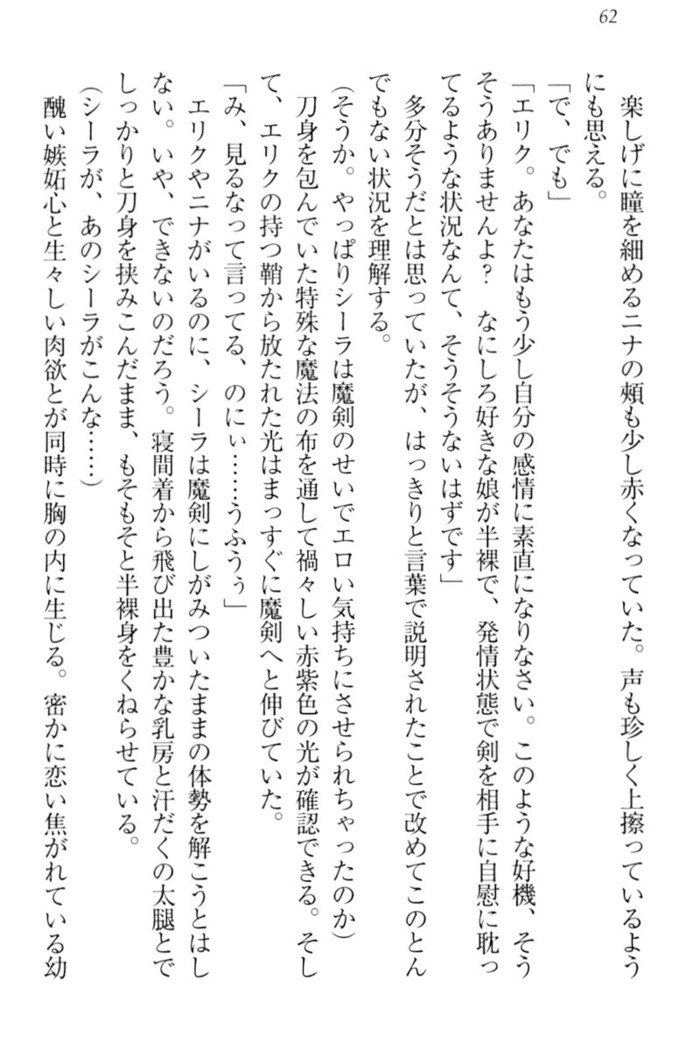 62
楽しげに瞳を細めるニナの頬も少し赤くなっていた。声も珍しく上擦っているよう
にも思える。
「で、でも」
「エリク。あなたはもう少し自分の感情に素直になりなさい。このような好機、そう
そうありませんよ？　なにしろ好きな娘が半裸で、発情状態で剣を相手に自慰に耽っ
てるような状況なんて、そうそうないはずです」
多分そうだとは思っていたが、はっきりと言葉で説明されたことで改めてこのとん
でもない状況を理解する。
（そうか。やっぱりシーラは魔剣のせいでエロい気持ちにさせられちゃったのか）
刀身を包んでいた特殊な魔法の布を通して禍々しい赤紫色の光が確認できる。そし
て、エリクの持つ鞘から放たれた光はまっすぐに魔剣へと伸びていた。
「み、見るなって言ってる、のにぃ……うふうぅ」
エリクやニナがいるのに、シーラは魔剣にしがみついたままの体勢を解こうとはし
ない。いや、できないのだろう。寝間着から飛び出た豊かな乳房と汗だくの太腿とで
しっかりと刀身を挟みこんだまま、もそもそと半裸身をくねらせている。
（シーラが、あのシーラがこんな……）
醜い嫉妬心と生々しい肉欲とが同時に胸の内に生じる。密かに恋い焦がれている幼